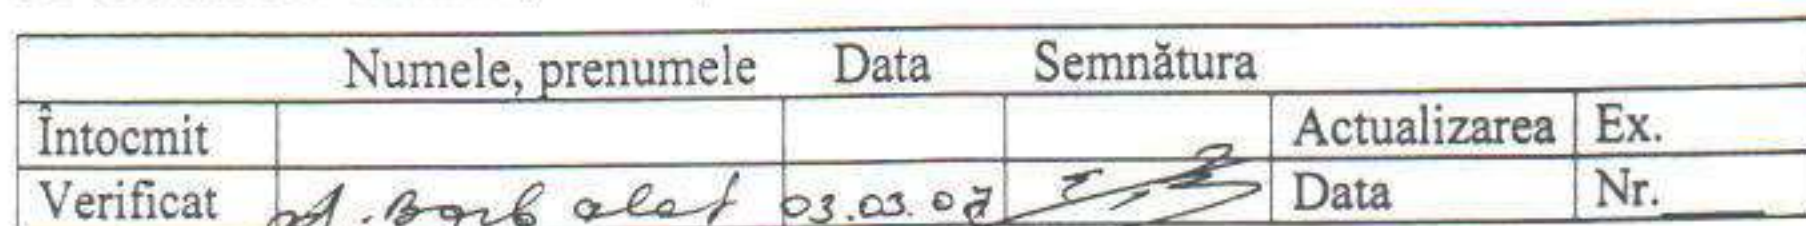 Numele, prenumele Data Semnătura
Întocmit Actualizarea Ex.
Verificat A. Barbalat 03.03.07 Data Nr.